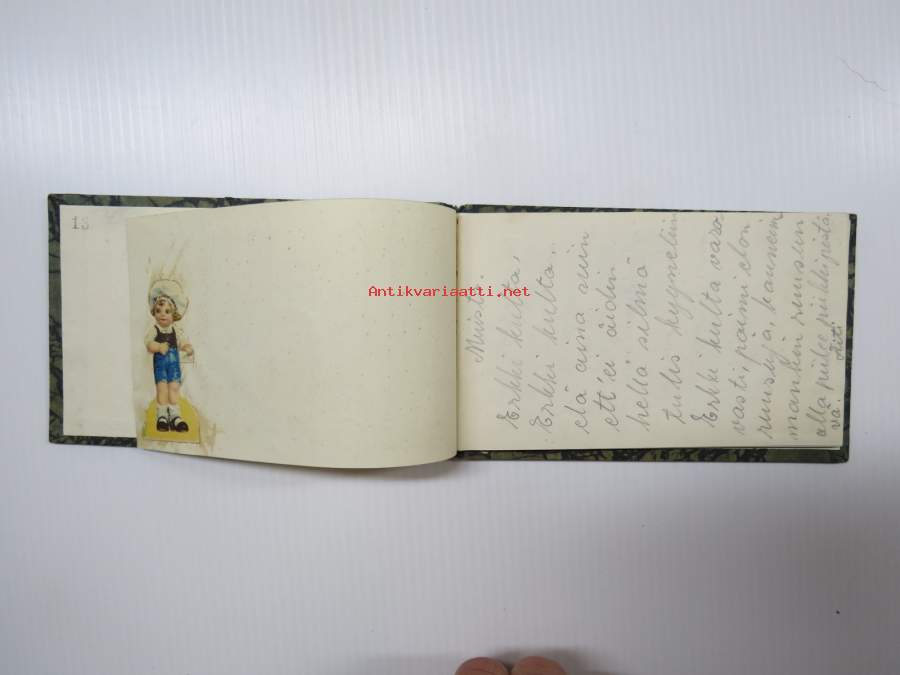 13
Antikvariaatti.net
Muisto.
Erkki kulta,
Erkki kulta.
elä aina niin
ett' ei äidin
hellä silmä
tulis kyyneliin
Erkki kulta varo-
vasti, poimi elon
ruusuja, kauneim
mankin ruusun
alla piilee piikki pistä
vä. Äiti